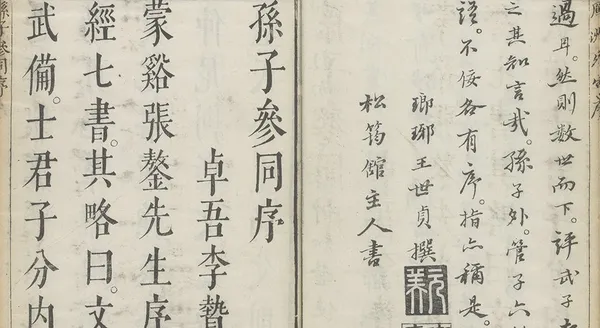 過耳。然則数世而下。評武子
之其知言哉。孫子外。管子六
語。不佞各有序。指亦稱是
瑯琊王世貞撰
松筠館主人書
孫子參同序
卓吾李贄
蒙谿張鏊先生序
經七書。其略曰。文
武備。士君子分內
孫子參同序